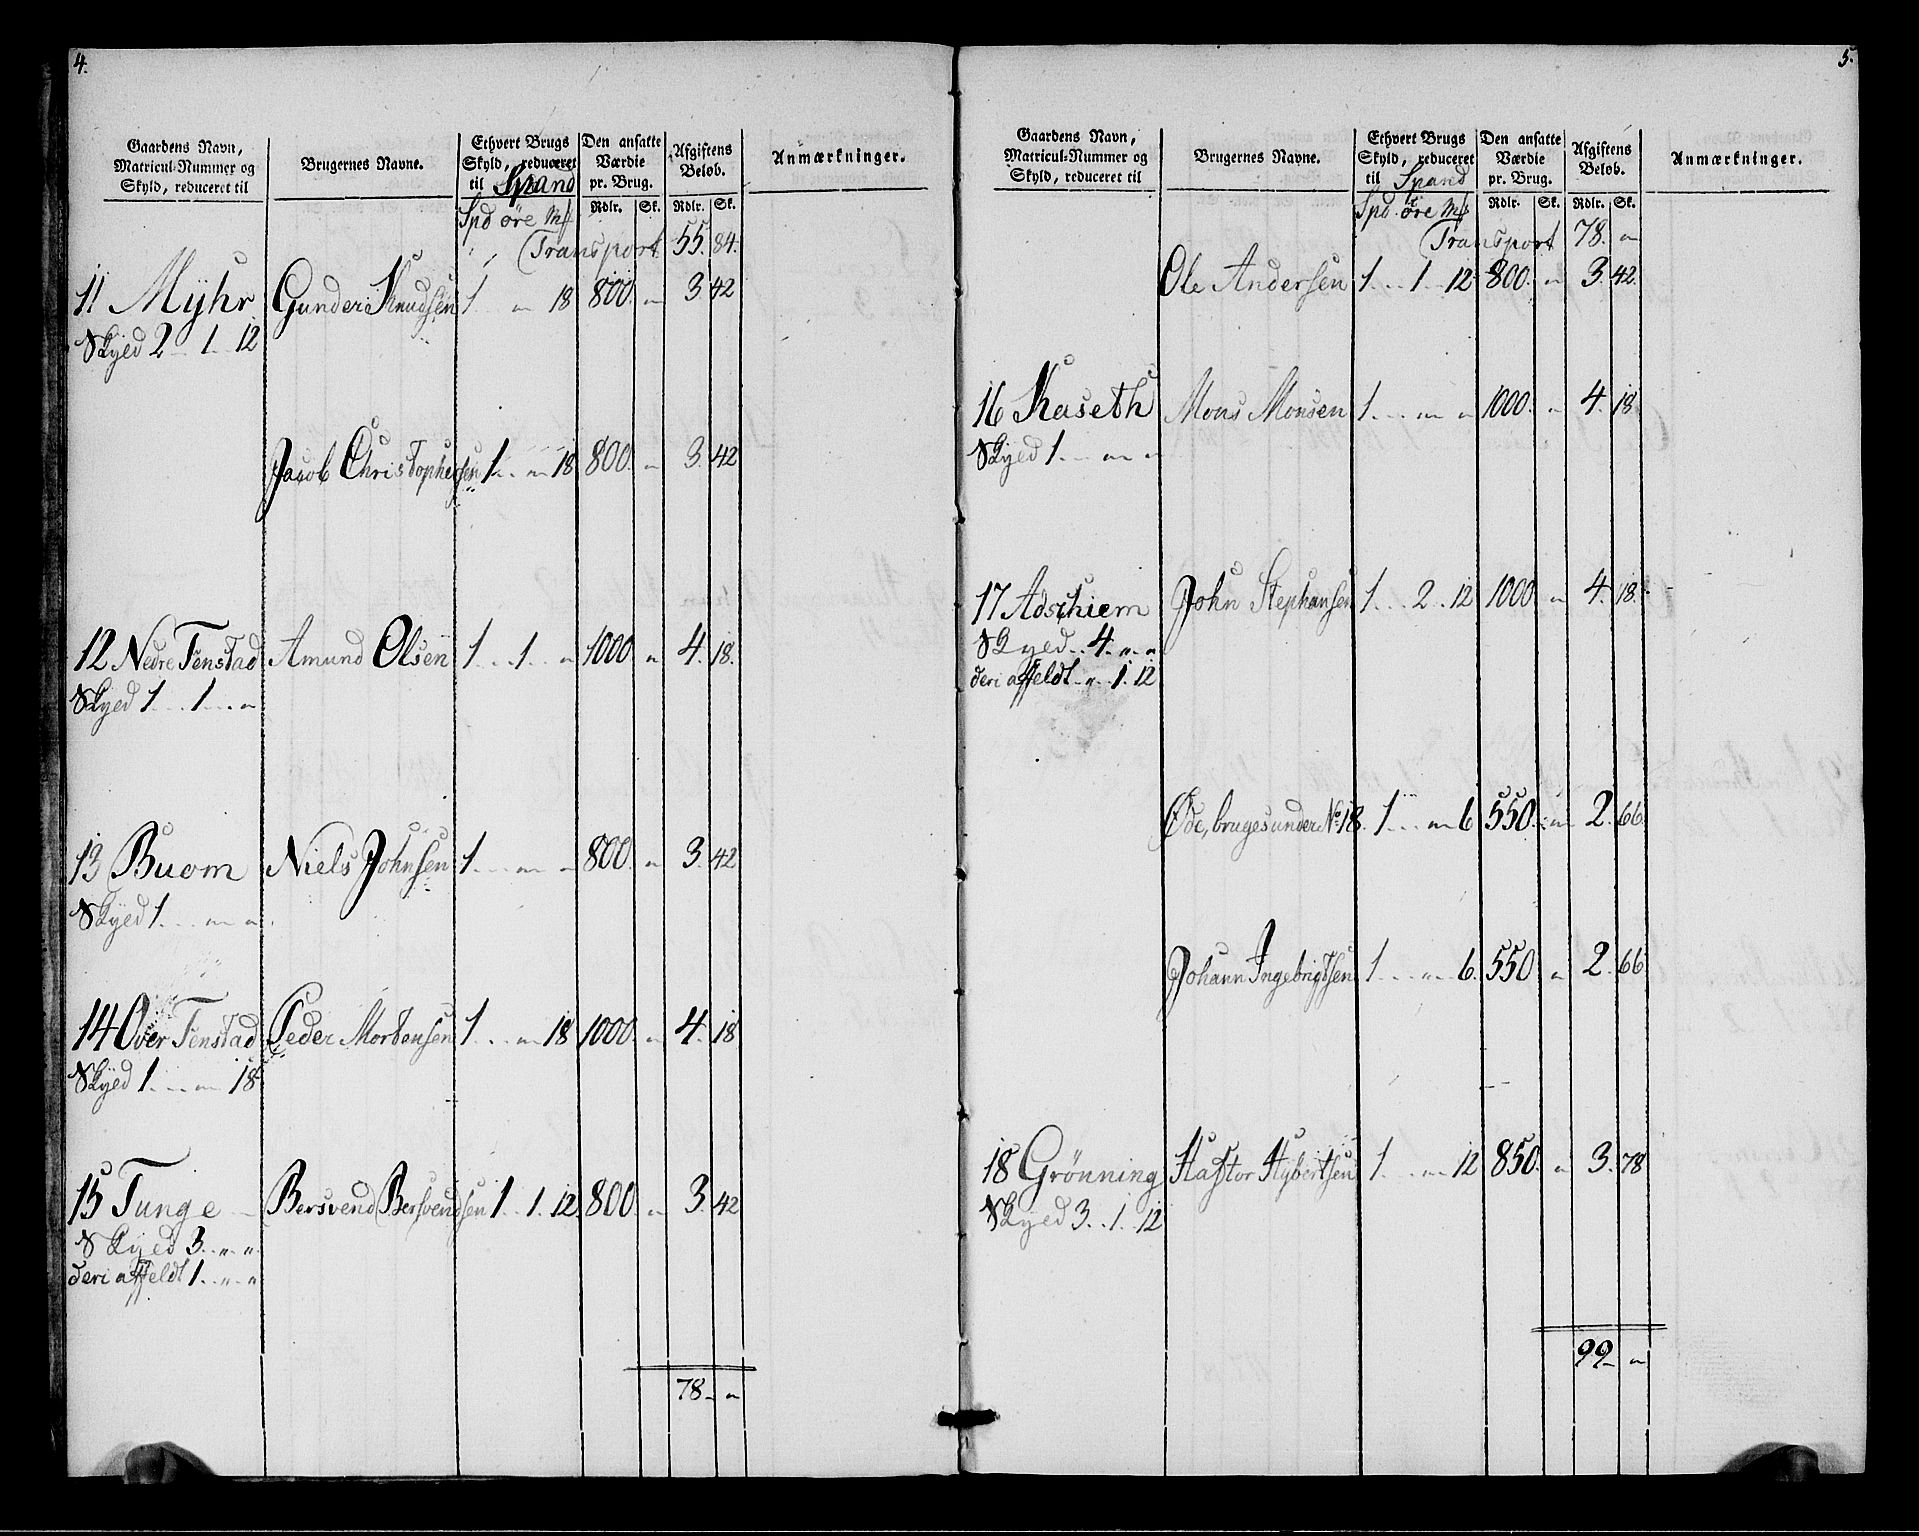 4.
Gaardens Navn, Matricul-Nummer og Skyld, reduceret til
Brugernes Navne.
Ethvert Brugs Skyld, reduceret til Spand
Den ansatte Værdie pr. Brug.
Afgiftens Beløb.
Anmærkninger.
Spd øre Mk Rdlr. Sk. Rdlr. Sk.
Transport 55. 84.
11 Myhr Gunder Knudsen 1 " 18 800. " 3. 42
Skyed 2 . 1 . 12
Jacob Christophersen 1 . " 18 800. " 3. 42
12 Nedre Fenstad Amund Olsen 1 . 1 . " 1000 " 4. 18.
Skyed 1 . 1 . "
13 Buom Niels Johnsen 1 . " " 800. " 3. 42
Skyed 1 . " "
14 Over Fenstad Peder Mortensen 1 . " 18 1000. " 4. 18
Skyed 1 . " 18
15 Tunge Bersvend Bersvendsen 1 . 1 . 12. 800. " 3. 42
Skyed 3. " "
deri affeldt 1. " "
78 "
5.
Gaardens Navn, Matricul-Nummer og Skyld, reduceret til
Brugernes Navne.
Ethvert Brugs Skyld, reduceret til Spand
Den ansatte Værdie pr. Brug.
Afgiftens Beløb.
Anmærkninger.
Spd. øre Mk Rdlr. Sk. Rdlr. Sk.
Transport 78. "
Ole Andersen 1 . 1 . 12 800. " 3. 42.
16 Kaseth Mons Monsen 1 . " " 1000. " 4. 18
Skyed 1 . " "
17 Adschiem John Stephansen 1 . 2 . 12 1000 " 4. 18.
Skyed . 4. " "
deri affeldt " 1. 12
Øde, bruges under No 18. 1 . " 6 550. " 2. 66.
Johann Ingebrigtsen 1 . " 6. 550 " 2. 66
18 Grönning Hastor Hybertsen 1 . " 12 850. " 3. 78
Skyed 3. . 1 . 12
99 "